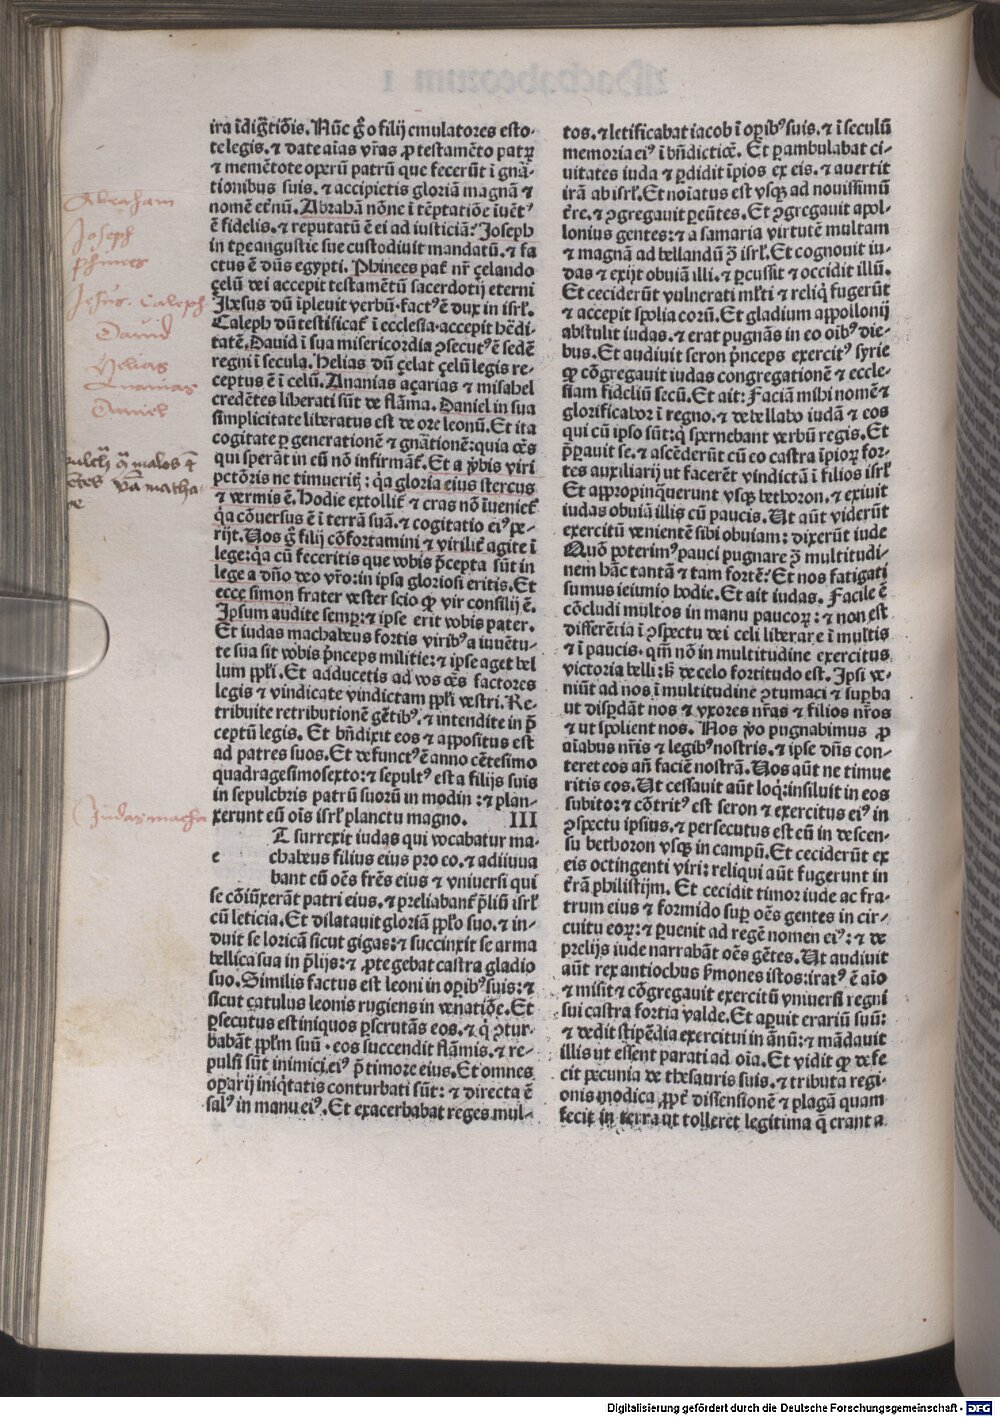 ira ĩdiḡtiõis. Nũc g̊ o filij emulatores esto-
te legis. ⁊ date aĩas vr̃as ꝓ testamẽto patꝝ
⁊ memẽtote operũ patrũ que fecerũt ĩ gnã-
tionibus suis. ⁊ accipietis gloriã magnã ⁊
nomẽ etnũ. Abrahã nõne ĩ tẽptatiõe ĩuẽtꝰ
ẽ fidelis. ⁊ reputatũ ẽ ei ad iusticiã? Joseph
in tꝑe angustie sue custodiuit mandatũ. ⁊ fa
ctus ẽ dñs egypti. Phinees pat̃ nr̃ çelando
çelũ dei accepit testamẽtũ sacerdotij eterni
Jhesus dũ ĩpleuit verbũ · factꝰ ẽ dux in isrl̃.
Caleph dũ testificat̃ ĩ ecclesia · accepit hẽdi-
tatẽ. Dauid ĩ sua misericordia ꝯsecutꝰ ẽ sedẽ
regni ĩ secula. Helias dũ çelat çelũ legis re-
ceptus ẽ ĩ celũ. Ananias açarias ⁊ misahel
credẽtes liberati sũt de flãma. Daniel in sua
simplicitate liberatus est de ore leonũ. Et ita
cogitate ꝑ generationẽ ⁊ gnãtionẽ: quia oẽs
qui sperãt in eũ nõ infirmãt̃. Et a v̾bis viri
pctõris ne timueritj: q̃a gloria eius stercus
⁊ vermis ẽ. Hodie extollit̃ ⁊ cras nõ ĩuenict̃
q̃a cõuersus ẽ ĩ terrã suã. ⁊ cogitatio eiꝰ pe-
rijt. Vos g̊ filij cõfortamini ⁊ virilit̃ agite ĩ
lege: q̃a cũ feceritis que vobis p̃cepta sũt in
lege a dño deo vr̃o: in ipsa gloriosi eritis. Et
ecce simon frater vester scio ꝙ vir consilij ẽ.
Ipsum audite semꝑ: ⁊ ipse erit vobis pater.
Et iudas machabeus fortis viribꝰ a iuuẽtu-
te sua sit vobis p̃nceps militie: ⁊ ipse aget bel
lum ppl̃i. Et adducetis ad vos oẽs factores
legis ⁊ vindicate vindictam ppl̃i vestri. Re-
tribuite retributionẽ gẽtibꝰ. ⁊ intendite in p̃
ceptũ legis. Et bñdixit eos ⁊ appositus est
ad patres suos. Et defunctꝰ ẽ anno cẽtesimo
quadragesimosexto: ⁊ sepultꝰ est a filijs suis
in sepulchris patrũ suorũ in modin: ⁊ plan-
xerunt eũ oĩs isrl̃ planctu magno. III
T surrexit iudas qui vocabatur ma-
e chabeus filius eius pro eo. ⁊ adiuuua
bant eũ oẽs fr̃es eius ⁊ vniuersi qui
se cõiũxerãt patri eius. ⁊ preliabant̃ p̃liũ isrl̃
cũ leticia. Et dilatauit gloriã ppl̃o suo. ⁊ in-
duit se loricã sicut gigas: ⁊ succinxit se arma
bellica sua in p̃lijs: ⁊ ꝓtegebat castra gladio
suo. Similis factus est leoni in oꝑibꝰ suis: ⁊
sicut catulus leonis rugiens in venatiõe. Et
ꝑsecutus est iniquos ꝑscrutãs eos. ⁊ q̇ ꝯtur-
babãt ppl̃m suũ · eos succendit flãmis. ⁊ re-
pulsi sũt inimici eiꝰ p̃ timore eius. Et omnes
oꝑarij iniq̇tatis conturbati sũt: ⁊ directa ẽ
salꝰ in manu eiꝰ. Et exacerbabat reges mul-
tos. ⁊ letificabat iacob ĩ oꝑibꝰ suis. ⁊ ĩ seculũ
memoria eiꝰ ĩ bñdictiõe. Et ꝑambulabat ci-
uitates iuda ⁊ ꝑdidit ĩpios ex eis. ⁊ auertit
irã ab isrl̃. Et noĩatus est vsqꝫ ad nouissimũ
t̾re. ⁊ ꝯgregauit ꝑeũtes. Et ꝯgregauit apol-
lonius gentes: ⁊ a samaria virtutẽ multam
⁊ magnã ad bellandũ ꝯ̃ isrl̃. Et cognouit iu-
das ⁊ exijt obuiã illi. ⁊ ꝑcussit ⁊ occidit illũ.
Et ceciderũt vulnerati ml̃ti ⁊ reliq̇ fugerũt
⁊ accepit spolia eorũ. Et gladium appollonij
abstulit iudas. ⁊ erat pugnãs in eo oĩbꝰ die-
bus. Et audiuit seron p̃nceps exercitꝰ syrie
ꝙ cõgregauit iudas congregationẽ ⁊ eccle-
siam fideliũ secũ. Et ait: Faciã mihi nomẽ ⁊
glorificabor ĩ regno. ⁊ debellabo iudã ⁊ eos
qui cũ ipso sũt: q̇ spernebant verbũ regis. Et
p̃ꝑauit se. ⁊ ascẽderũt cũ eo castra ĩpioꝝ for-
tes auxiliarij ut facerẽt vindictã ĩ filios isrl̃
Et appropinq̃uerunt vsqꝫ bethoron. ⁊ exiuit
iudas obuiã illis cũ paucis. Vt aũt viderũt
exercitũ venientẽ sibi obuiam: dixerũt iude
Quõ poterimꝰ pauci pugnare ꝯ̃ multitudi-
nem hãc tantã ⁊ tam fortẽ? Et nos fatigati
sumus ieiunio hodie. Et ait iudas. Facile ẽ
cõcludi multos in manu paucoꝝ: ⁊ non est
differẽtia ĩ ꝯspectu dei celi liberare ĩ multis
⁊ ĩ paucis. qm̃ nõ in multitudine exercitus
victoria belli: sꝫ de celo fortitudo est. Ipsi ve-
niũt ad nos ĩ multitudine ꝯtumaci ⁊ suꝑba
ut disꝑdãt nos ⁊ vxores nr̃as ⁊ filios nr̃os
⁊ ut spolient nos. Nos v̾o pugnabimus ꝓ
aĩabus nr̃is ⁊ legibꝰ nostris. ⁊ ipse dñs con-
teret eos añ faciẽ nostrã. Vos aũt ne timue
ritis eos. Vt cessauit aũt loq̇: insiluit in eos
subito: ⁊ cõtritꝰ est seron ⁊ exercitus eiꝰ in
ꝯspectu ipsius. ⁊ persecutus est eũ in descen-
su bethoron vsqꝫ in campũ. Et ceciderũt ex
eis octingenti viri: reliqui aũt fugerunt in
t̾rã philistijm. Et cecidit timor iude ac fra-
trum eius ⁊ formido suꝑ oẽs gentes in cir-
cuitu eoꝝ: ⁊ ꝑuenit ad regẽ nomen eiꝰ: ⁊ de
prelijs iude narrabãt oẽs gẽtes. Vt audiuit
aũt rex antiochus s̾mones istos: iratꝰ ẽ aĩo
⁊ misit ⁊ cõgregauit exercitũ vniuersi regni
sui castra fortia valde. Et aperuit erariũ suũ:
⁊ dedit stipẽdia exercitui in ãnũ: ⁊ mãdauit
illis ut essent parati ad oĩa. Et vidit ꝙ defe
cit pecunia de thesauris suis. ⁊ tributa regi-
onis modica ꝓpt̃ dissensionẽ ⁊ plagã quam
fecit in terra ut tolleret legitima q̃ erant a
Abraham
Joseph
phinees
Jesus. Caleph
Dauid
Helias
Ananias
Daniel
Judas macha
Digitalisierung gefördert durch die Deutsche Forschungsgemeinschaft - DFG